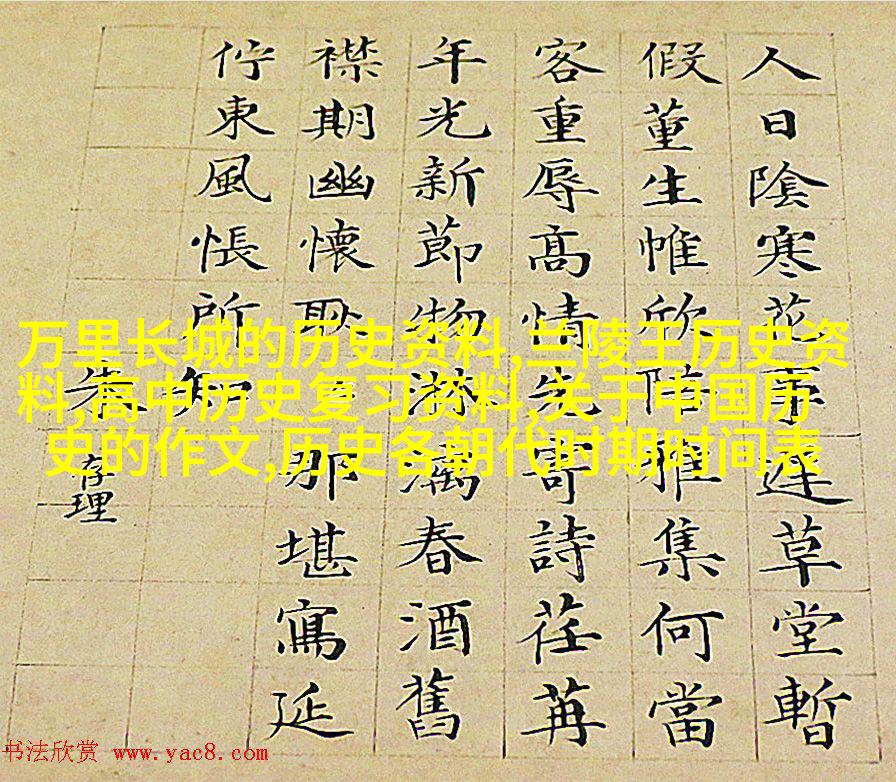 人日陰寒花事遲草堂暫
假董生帷欣陪雅集何當
客重辱高情先寄詩荏苒
年光新節物淋漓春酒舊
襟期幽懷耿那堪寫延
佇東風悵所知
朱存理
万里长城的历史资料,兰陵王历史资
料,高中历史复习资料,关于中国历
史的作文,历史各朝代时期时间表
书法欣赏 www.yac8.com